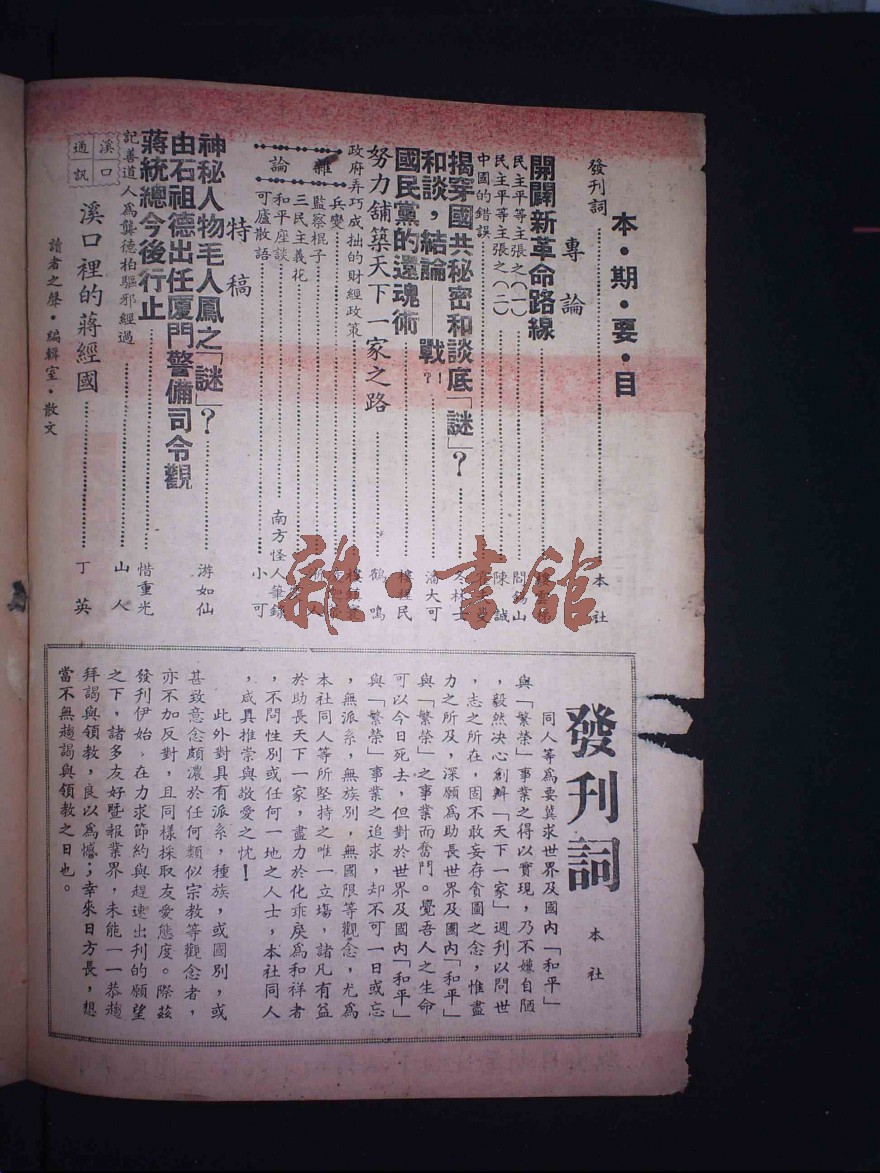 本・期・要・目
發刊詞 本社
專論
開闢新革命路線
民主平等主張之(一) 閻錫山
民主平等主張之(二) 陳誠
中國的錯誤
揭穿國共秘密和談底「謎」?
和談,結論——戰?! 潘大可
國民黨的還魂術 樓桂民
努力舖築天下一家之路 鶴鳴
政府弄巧成拙的財經政策
雜論
兵變
監察棍子
三民主義花
和平座談 南方怪人筆錄
可廬散語 小可
特稿
神秘人物毛人鳳之「謎」? 游如仙
由石祖德出任廈門警備司令觀
蔣統總今後行止 惜重光
記善道人為龔德柏驅邪經過 山人
溪口通訊
溪口裡的蔣經國 丁英
讀者之聲・編輯室・散文
發刊詞
本社
同人等為要冀求世界及國內「和平」
與「繁榮」事業之得以實現,乃不嫌自陋
,毅然決心創辦「天下一家」週刊以問世
,志之所在,固不敢妄存貪圖之念,惟盡
力之所及,深願為助長世界及國內「和平」
與「繁榮」之事業而奮鬥。覺吾人之生命
可以今日死去,但對於世界及國內「和平」
與「繁榮」事業之追求,却不可一日或忘
,無派系,無族別,無國限等觀念,尤為
本社同人等所堅持之唯一立場,諸凡有益
於助長天下一家,盡力於化乖戾為和祥者
,不問性別或任何一地之人士,本社同人
,咸具推崇與敬愛之忱!
此外對具有派系,種族,或國別,或
甚致意念頗濃於任何類似宗教等觀念者,
亦不加反對,且同樣採取友愛態度。際茲
發刊伊始,在力求節約與趕速出刊的願望
之下,諸多友好暨報業界,未能一一恭趨
拜謁與領教,良以為憾;幸來日方長,想
當不無趨謁與領教之日也。
雜・書館